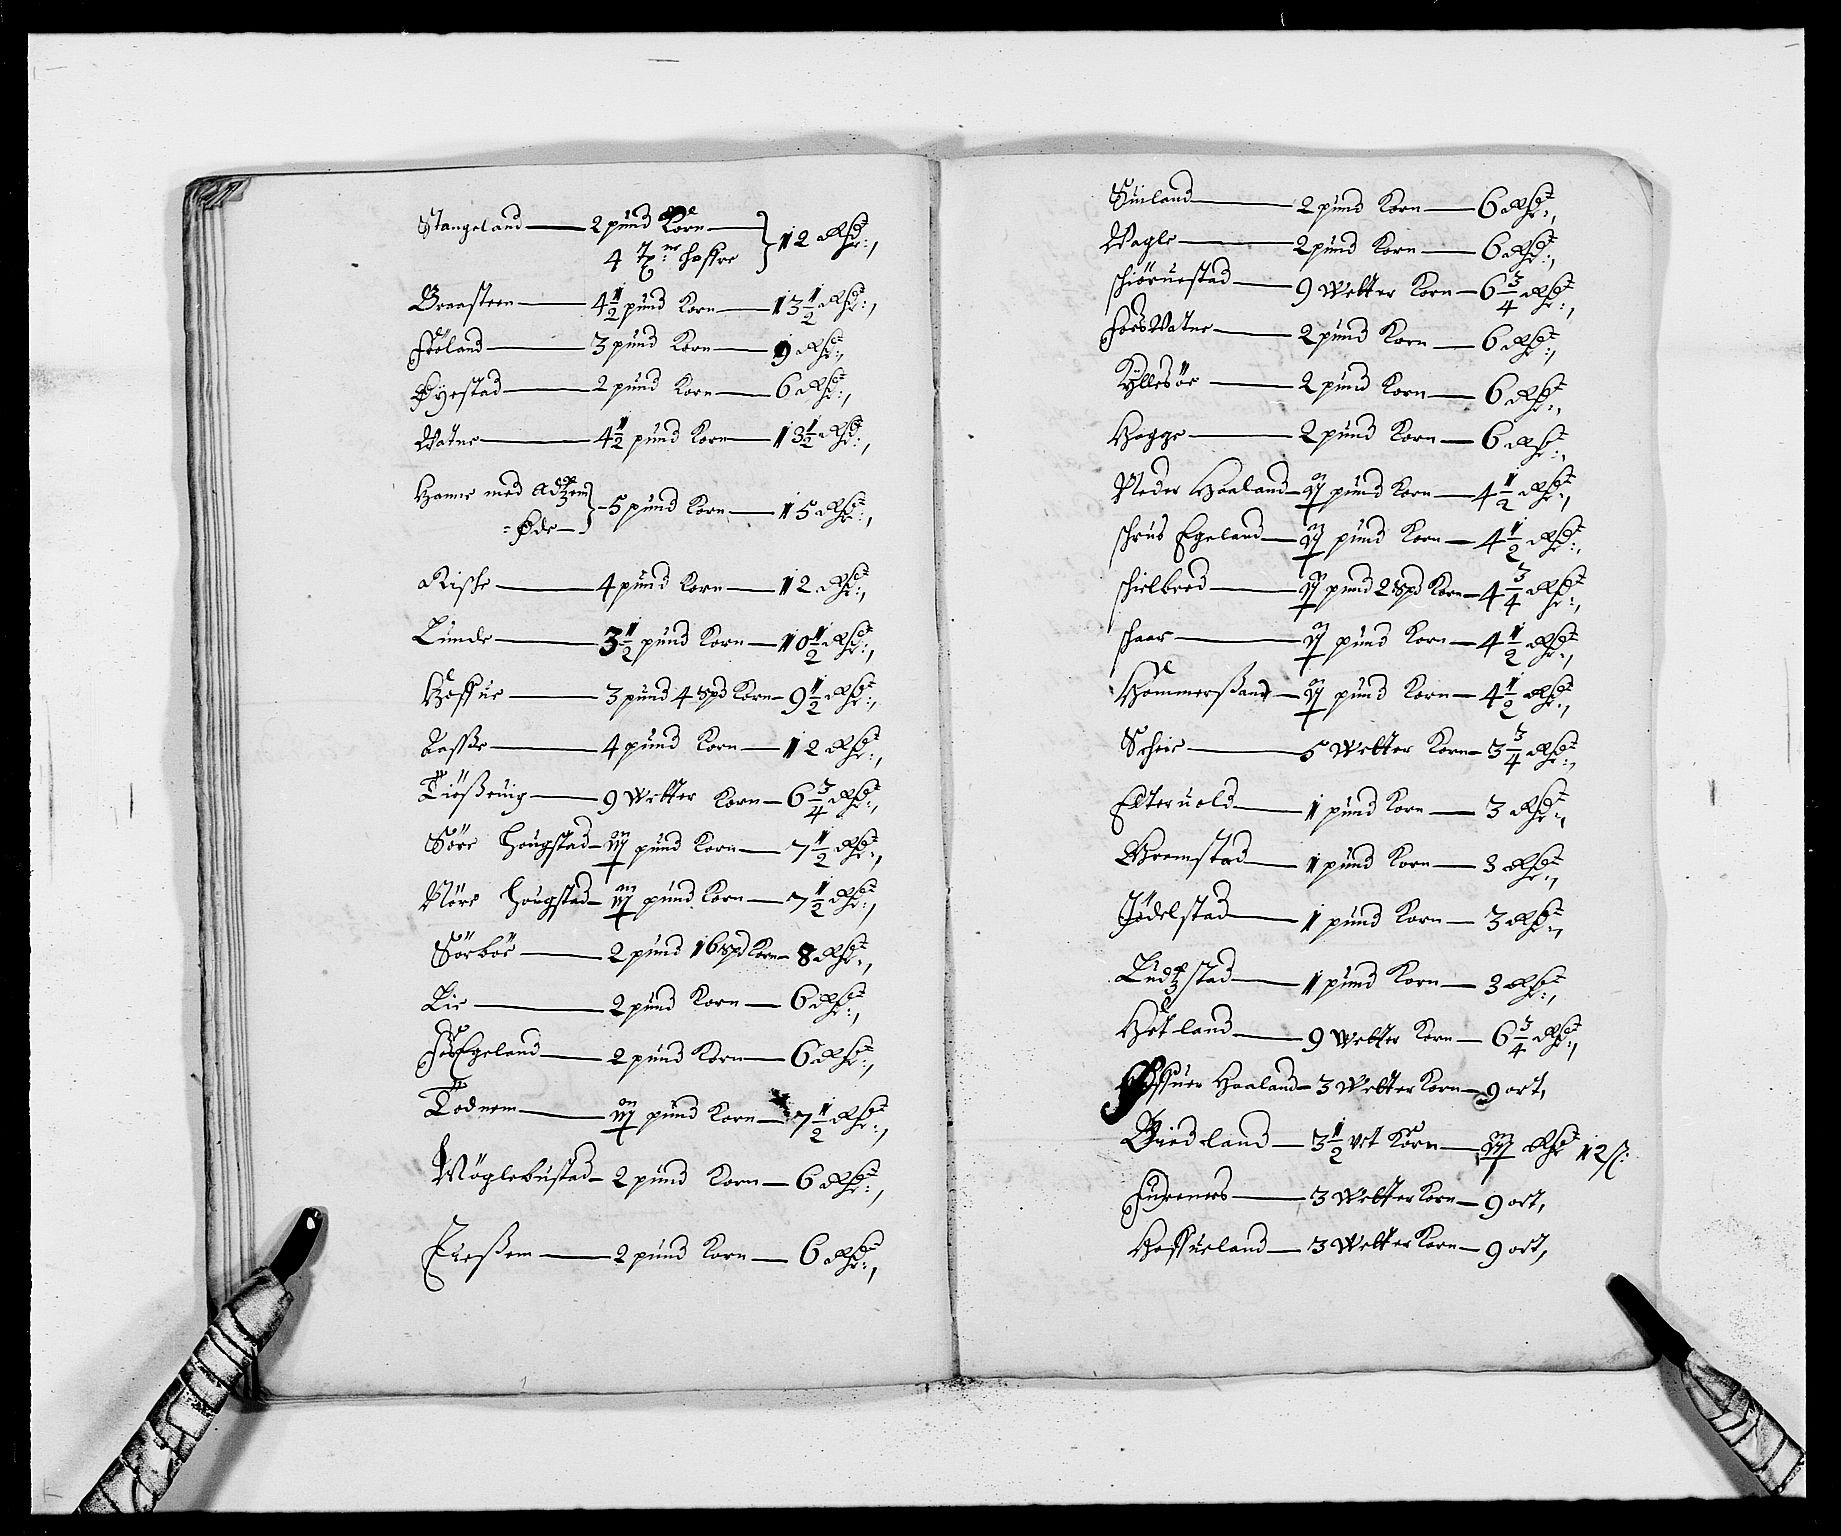 Stangeland — 2 pund Korn — } 12 Rhdr:,
4 Tn.r haffre
Braasteen — 4½ pund Korn — 13½ Rhdr:,
Fröland — 3 pund Korn — 9 Rhdr:,
Öyestad — 2 pund Korn — 6 Rhdr:,
Watne — 4½ pund Korn — 13½ Rhdr:,
Hanne med Adtzem } 5 pund Korn — 15 Rhdr:,
Öde —
Riske — 4 pund Korn — 12 Rhdr:,
Lunde — 3½ pund Korn — 10½ Rhdr:,
Hoffue — 3 pund 4 spd Korn — 9½ Rhdr:,
4 pund Korn — 12 Rhdr:,
Tiößuig — 9 Wetter Korn — 6¾ Rhdr:,
Söre Hougstad — pund Korn — 7½ Rhdr:,
Nöre Hougstad — pund Korn — 7½ Rhdr:,
Sörböe — 2 pund 16 spd Korn — 8 Rhdr:,
Lie — 2 pund Korn — 6 Rhdr:,
Egeland — 2 pund Korn — 6 Rhdr:,
Todnem — pund Korn — 7½ Rhdr:,
Möglebustad — 2 pund Korn — 6 Rhdr:,
2 pund Korn — 6 Rhdr:,
Suiland — 2 pund Korn — 6 Rhdr:,
Wagle — 2 pund Korn — 6 Rhdr:,
Schiöruestad — 9 Wetter Korn — 6¾ Rhdr:,
FoesWatne — 2 pund Korn — 6 Rhdr:,
Kyllesöe — 2 pund Korn — 6 Rhdr:,
Hogge — 2 pund Korn — 6 Rhdr:,
Neder Haaland — pund Korn — 4½ Rhdr:,
Schrus Egeland — pund Korn — 4½ Rhdr:,
Schielbred — pund 2 spd Korn — 4¾ Rhdr:,
Schaar — pund Korn — 4½ Rhdr:,
Hommerßand — pund Korn — 4½ Rhdr:,
Scheie — 5 Wetter Korn — 3¾ Rhdr:,
Elteruold — 1 pund Korn — 3 Rhdr:,
Gremstad — 1 pund Korn — 3 Rhdr:,
Jödelstad — 1 pund Korn — 3 Rhdr:,
Ludtzstad — 1 pund Korn — 3 Rhdr:,
Hetland — 9 Wetter Korn — 6¾ Rhdr:,
Haaland — 3 Wetter Korn — 9 ort,
Giedland — 3½ vet Korn — Rhdr 12 ß:
Furenes — 3 Wetter Korn — 9 ort,
Hoffueland — 3 Wetter Korn — 9 ort,